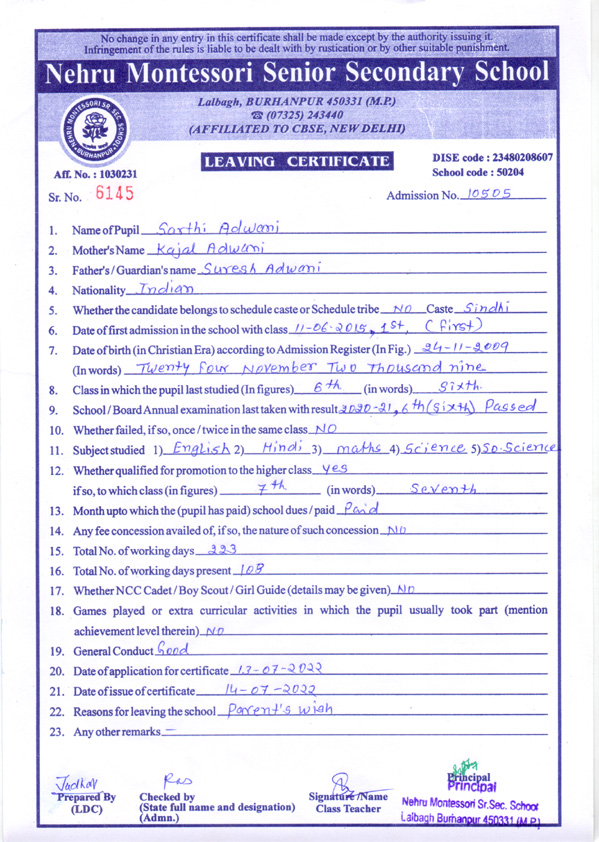 No change in any entry in this certificate shall be made except by the authority issuing it.
Infringement of the rules is liable to be dealt with by rustication or by other suitable punishment.
Nehru Montessori Senior Secondary School
Lalbagh, BURHANPUR 450331 (M.P.)
☎ (07325) 243440
(AFFILIATED TO CBSE, NEW DELHI)
NEHRU MONTESSORI SR. SEC. SCHOOL
BURHANPUR
LEAVING CERTIFICATE
DISE code : 23480208607
School code : 50204
Aff. No. : 1030231
Sr. No. 6145
Admission No. 10505
1. Name of Pupil Sarthi Adwani
2. Mother's Name Kajal Adwani
3. Father's / Guardian's name Suresh Adwani
4. Nationality Indian
5. Whether the candidate belongs to schedule caste or Schedule tribe NO Caste Sindhi
6. Date of first admission in the school with class 11-06-2015, 1st, (first)
7. Date of birth (in Christian Era) according to Admission Register (In Fig.) 24-11-2009
(In words) Twenty four November Two Thousand nine
8. Class in which the pupil last studied (In figures) 6th (in words) Sixth.
9. School / Board Annual examination last taken with result 2020-21, 6th (sixth) Passed
10. Whether failed, if so, once / twice in the same class NO
11. Subject studied 1) English 2) Hindi 3) maths 4) Science 5) So. Science
12. Whether qualified for promotion to the higher class yes
if so, to which class (in figures) 7th (in words) Seventh
13. Month upto which the (pupil has paid) school dues / paid Paid
14. Any fee concession availed of, if so, the nature of such concession NO
15. Total No. of working days 223
16. Total No. of working days present 108
17. Whether NCC Cadet / Boy Scout / Girl Guide (details may be given) NO
18. Games played or extra curricular activities in which the pupil usually took part (mention
achievement level therein) NO
19. General Conduct Good
20. Date of application for certificate 13-07-2022
21. Date of issue of certificate 14-07-2022
22. Reasons for leaving the school Parent's wish
23. Any other remarks —
Jadhav
Prepared By
(LDC)
Checked by
(State full name and designation)
(Admn.)
Signature /Name
Class Teacher
Principal
Principal
Nehru Montessori Sr.Sec. School
Lalbagh Burhanpur 450331 (M.P.)